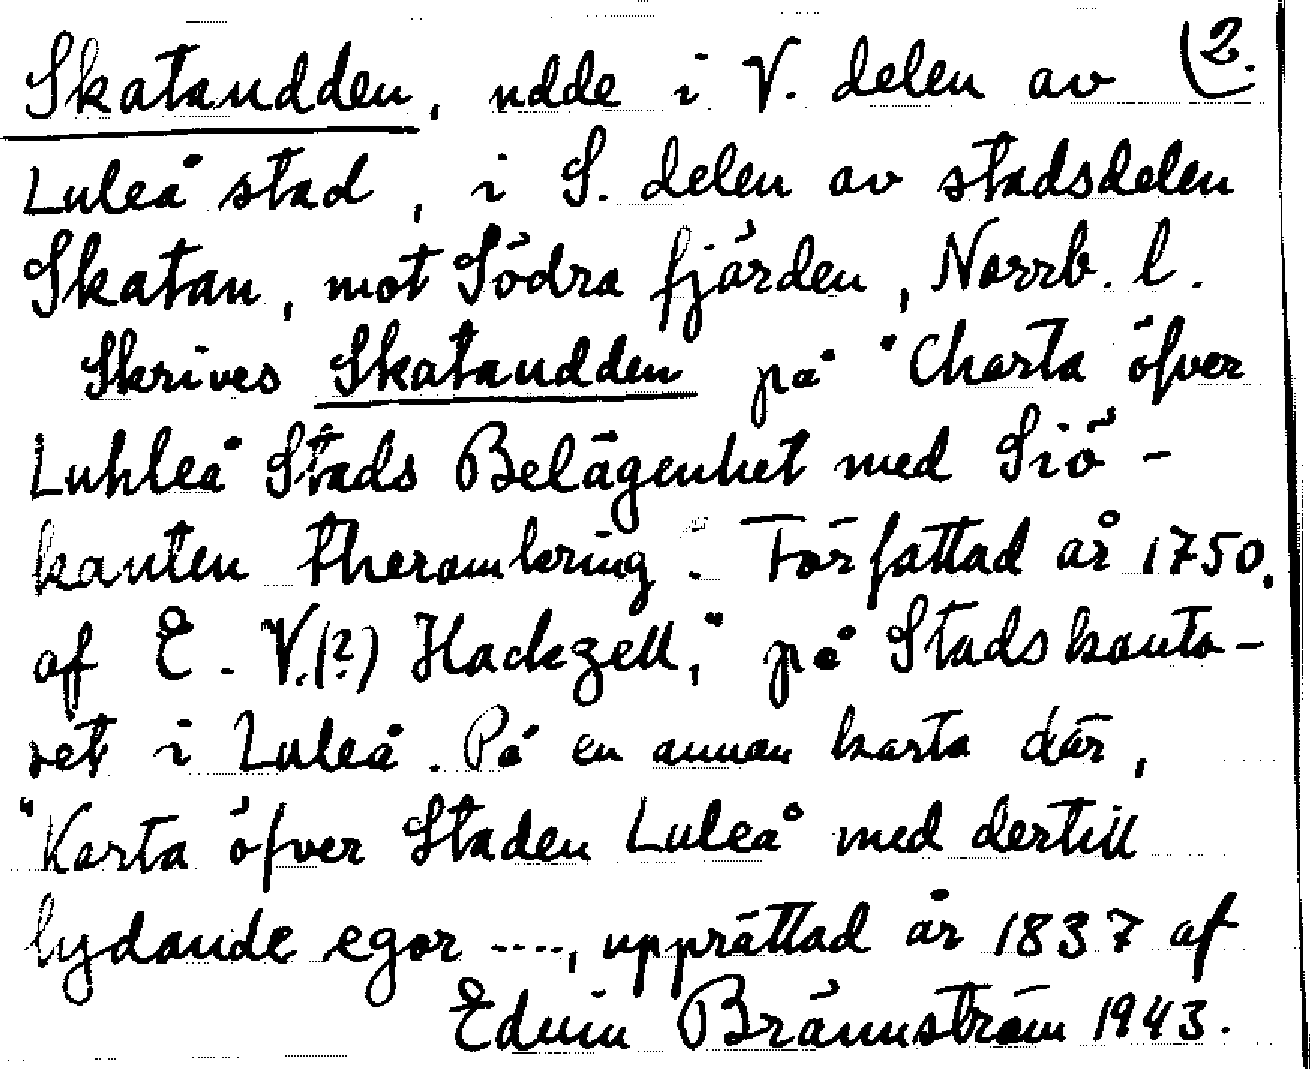 Skatandden, udde i V. delen av (2.
Luleå stad, i S. delen av stadsdelen
Skatan, mot Södra fjärden, Norrb. l.
Skrives Skatandden på "Charta öfver
Luhleå Stads Belägenhet med Siö-
kanten theromkring. Författad år 1750.
af E. V.(?) Hackzell," på Stadskonto-
ret i Luleå. På en annan karta där,
"Karta öfver Staden Luleå med dertill
lydande egor ----, upprättad år 1837 af
Edvin Brännström 1943.